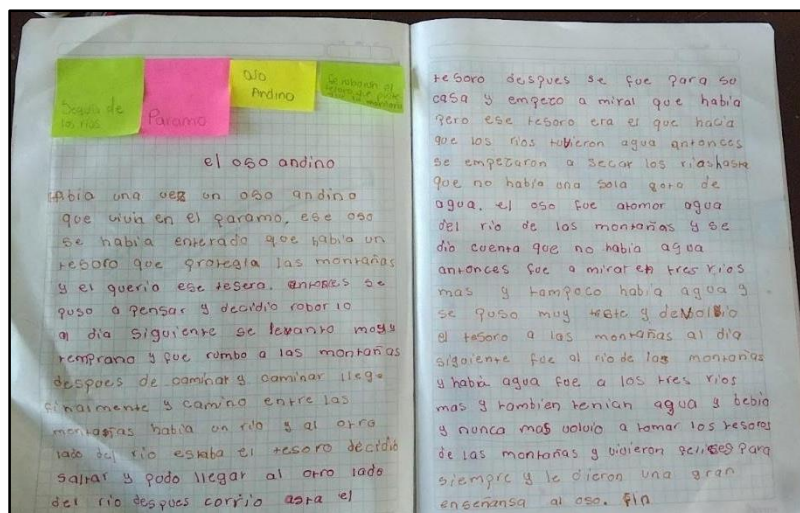 Sequia de
los rios
Paramo
Oso
Andino
Se robaron el
tesoro que
montaña
el oso andino
Abia una vez un oso andino
que vivia en el paramo, ese oso
se habia enterado que habia un
tesoro que protegia las montañas
y el queria ese tesoro. antonses se
puso a pensar y decidio robar lo
al dia siguiente se levanto muy
temprano y fue rumbo a las montañas
despues de caminar y caminar llego
finalmente y camino entre las
montañas habia un rio y al otro
lado del rio estaba el tesoro decidio
saltar y pudo llegar al otro lado
del rio despues corrio asta el
tesoro despues se fue para su
casa y empezo a miral que habia
pero ese tesoro era el que hacia
que los rios tubieron agua antonces
se empezaron a secar los rios haste
que no habia una sola gota de
agua. el oso fue atomar agua
del rio de las montañas y se
dio cuenta que no habia agua
antonces fue a mirar en tres rios
mas y tampoco habia agua y
se puso muy triste y devolvio
el tesoro a las montañas al dia
siguiente fue al rio de las montañas
y habia agua fue a los tres rios
mas y tambien tenian agua y bebia
y nunca mas volvio a tomar los tesoros
de las montañas y vivieron felises para
siempre y le dieron una gran
enseñansa al oso. fin